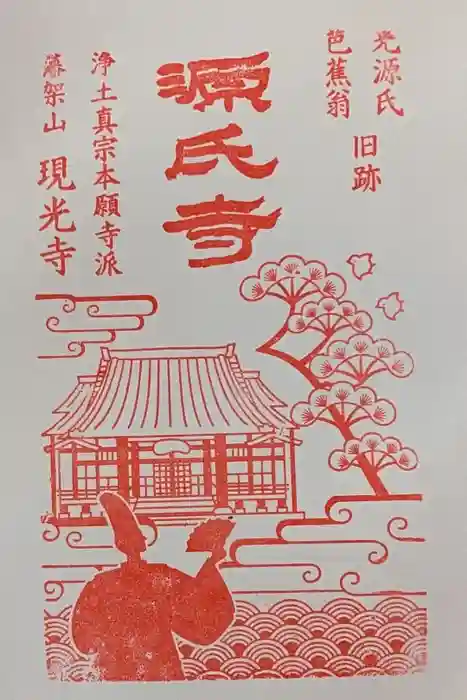 光源氏
芭蕉翁
旧跡
源氏寺
浄土真宗本願寺派
藩架山 現光寺